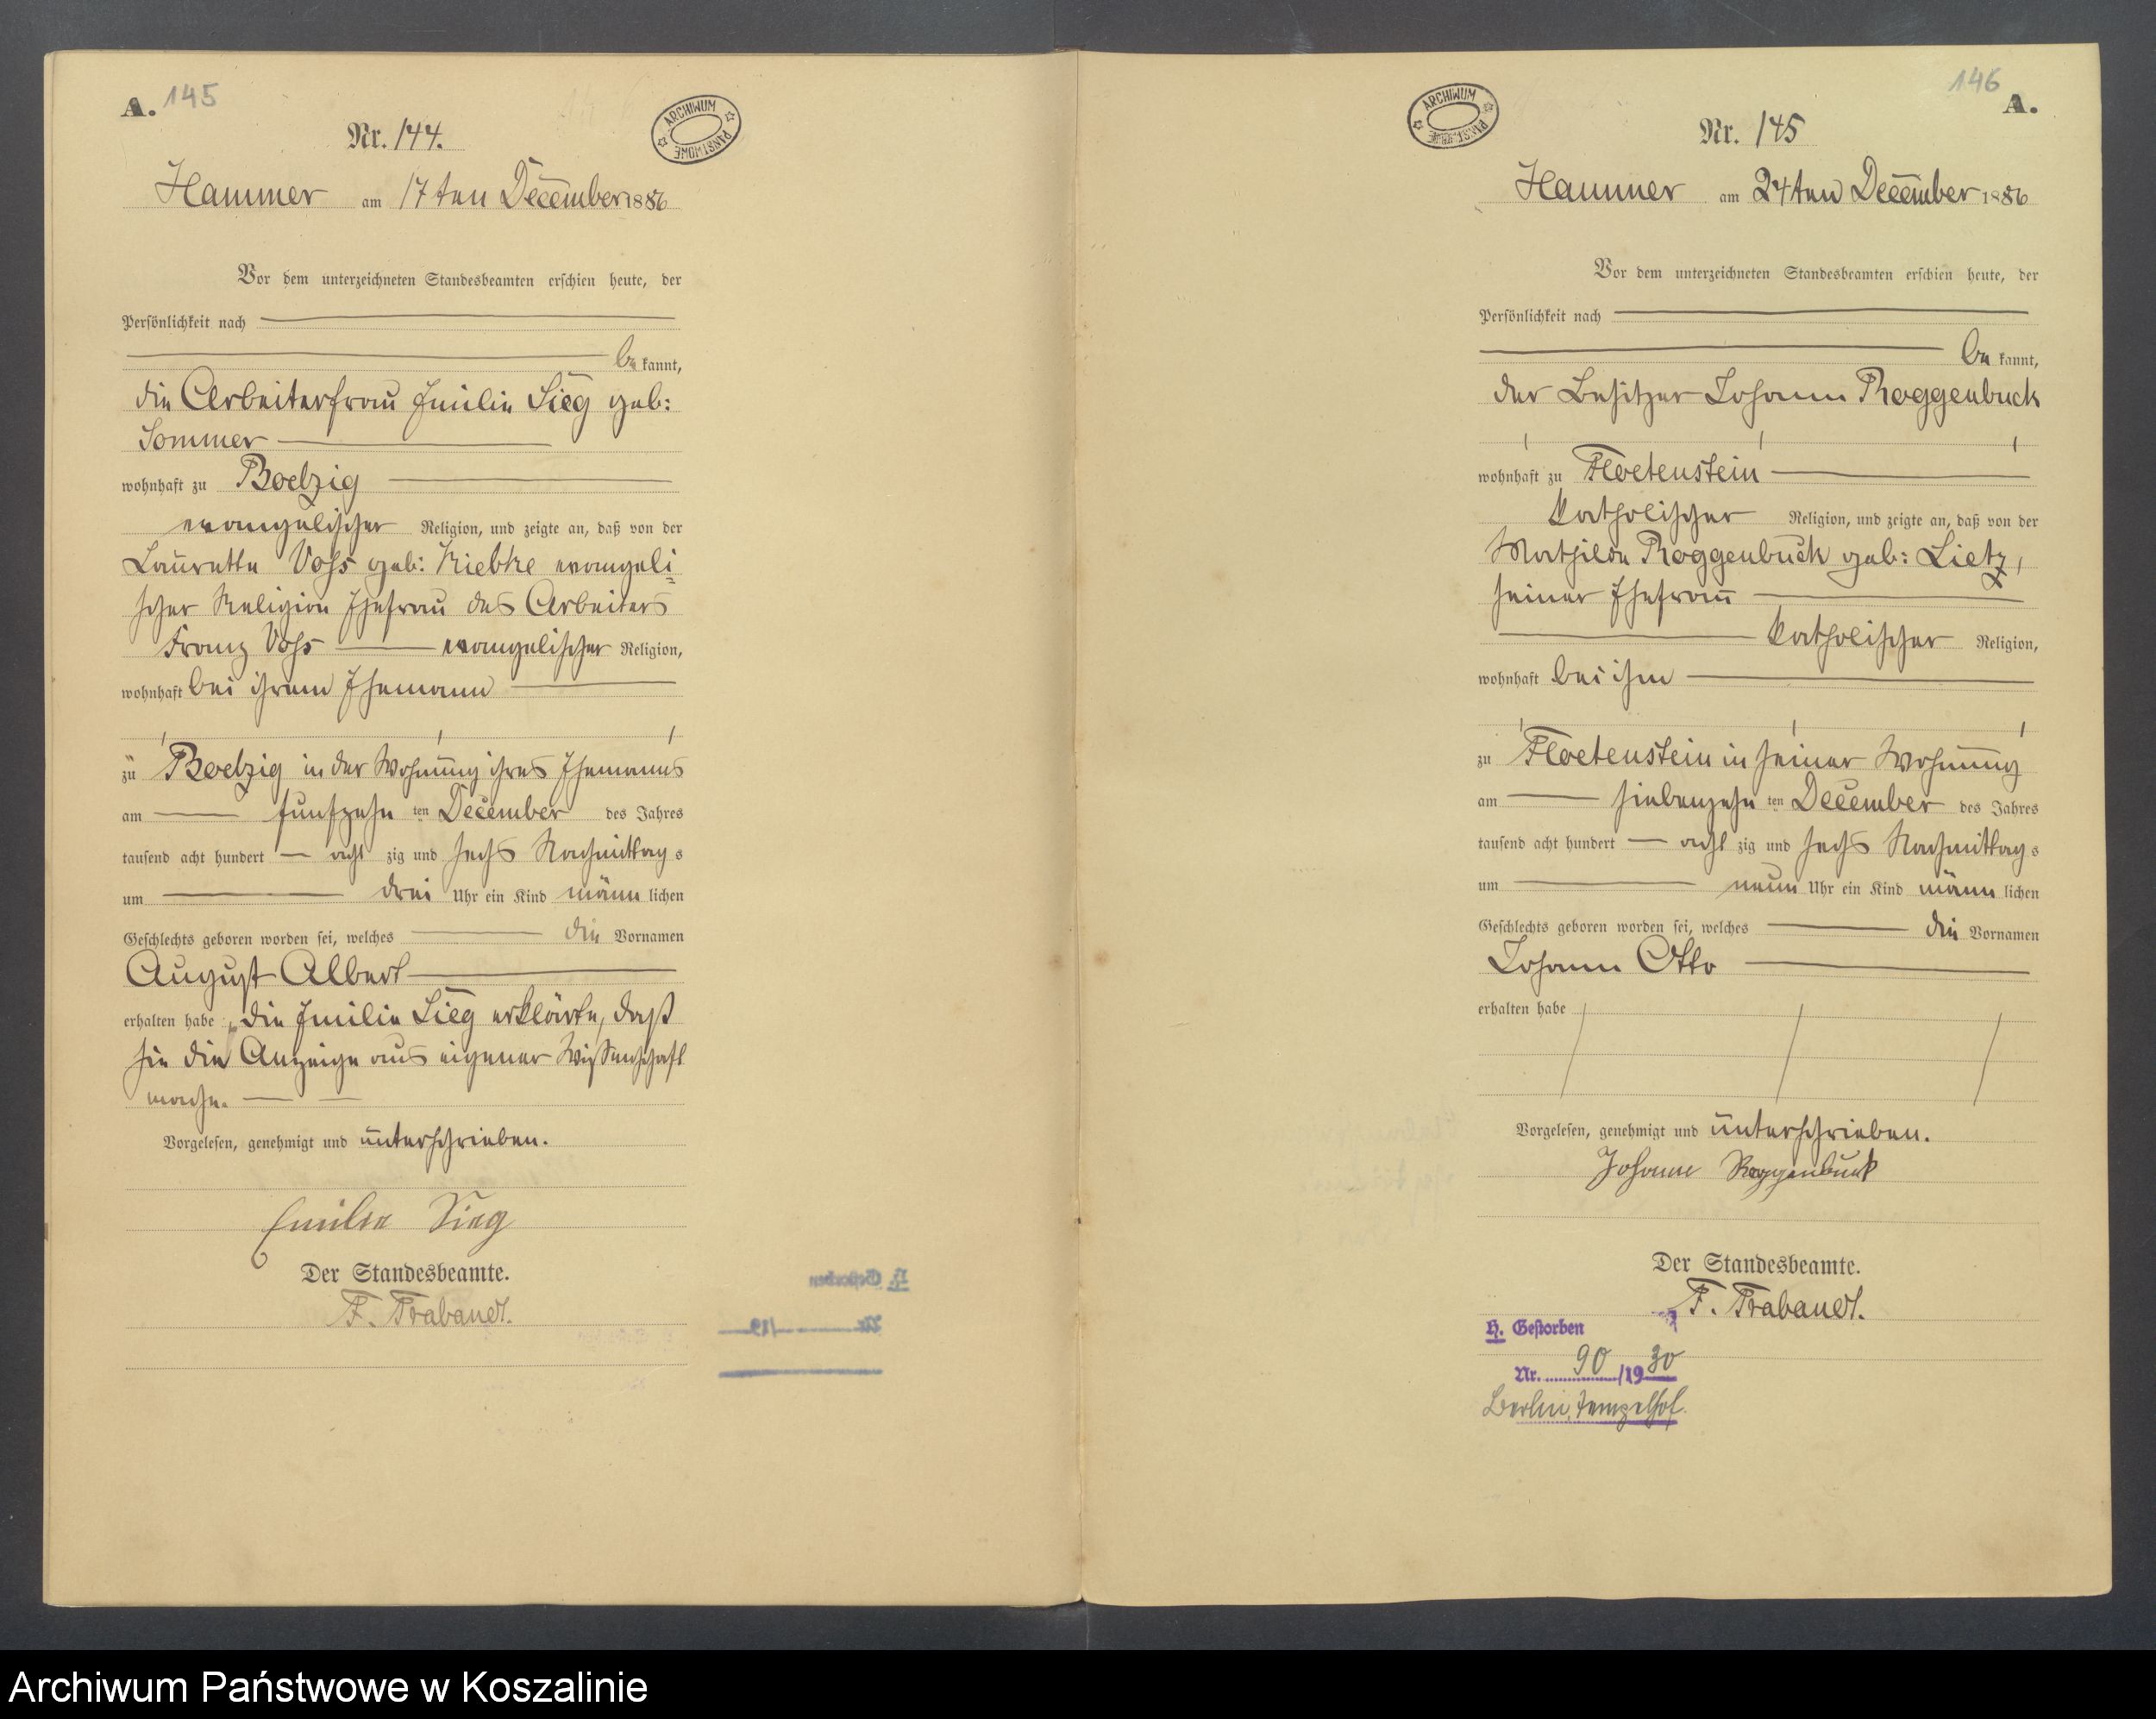 A. 145
ARCHIWUM PAŃSTWOWE
Nr. 144.
Hammer am 17ten December 1886
Vor dem unterzeichneten Standesbeamten erschien heute, der
Persönlichkeit nach
be kannt,
die Arbeiterfrau Emilie Sieg geb:
Sommer
wohnhaft zu Boelzig
evangelischer Religion, und zeigte an, daß von der
Laurette Voss geb: Kiebke evangeli-
scher Religion Ehefrau des Arbeiters
Franz Voss evangelischer Religion,
wohnhaft bei ihrem Ehemann
zu Boelzig in der Wohnung ihres Ehemanns
am fünfzehn ten December des Jahres
tausend acht hundert acht zig und sechs Nachmittag s
um drei Uhr ein Kind männ lichen
Geschlechts geboren worden sei, welches die Vornamen
August Albert
erhalten habe, die Emilie Sieg erklärte, daß
sie die Anzeige aus eigener Wissenschaft
mache.
Vorgelesen, genehmigt und unterschrieben.
Emilie Sieg
Der Standesbeamte.
F. Trabandt.
146 A.
ARCHIWUM PAŃSTWOWE
Nr. 145
Hammer am 24ten December 1886
Vor dem unterzeichneten Standesbeamten erschien heute, der
Persönlichkeit nach
be kannt,
der Besitzer Johann Roggenbuck
wohnhaft zu Floetenstein
katholischer Religion, und zeigte an, daß von der
Mathilde Roggenbuck geb: Lietz,
seiner Ehefrau
katholischer Religion,
wohnhaft bei ihm
zu Floetenstein in seiner Wohnung
am siebenzehn ten December des Jahres
tausend acht hundert acht zig und sechs Nachmittag s
um neun Uhr ein Kind männ lichen
Geschlechts geboren worden sei, welches die Vornamen
Johann Otto
erhalten habe
Vorgelesen, genehmigt und unterschrieben.
Johann Roggenbuck
Der Standesbeamte.
F. Trabandt.
H. Gestorben
Nr. 90 /1930
Berlin, Tempelhof.
Archiwum Państwowe w Koszalinie